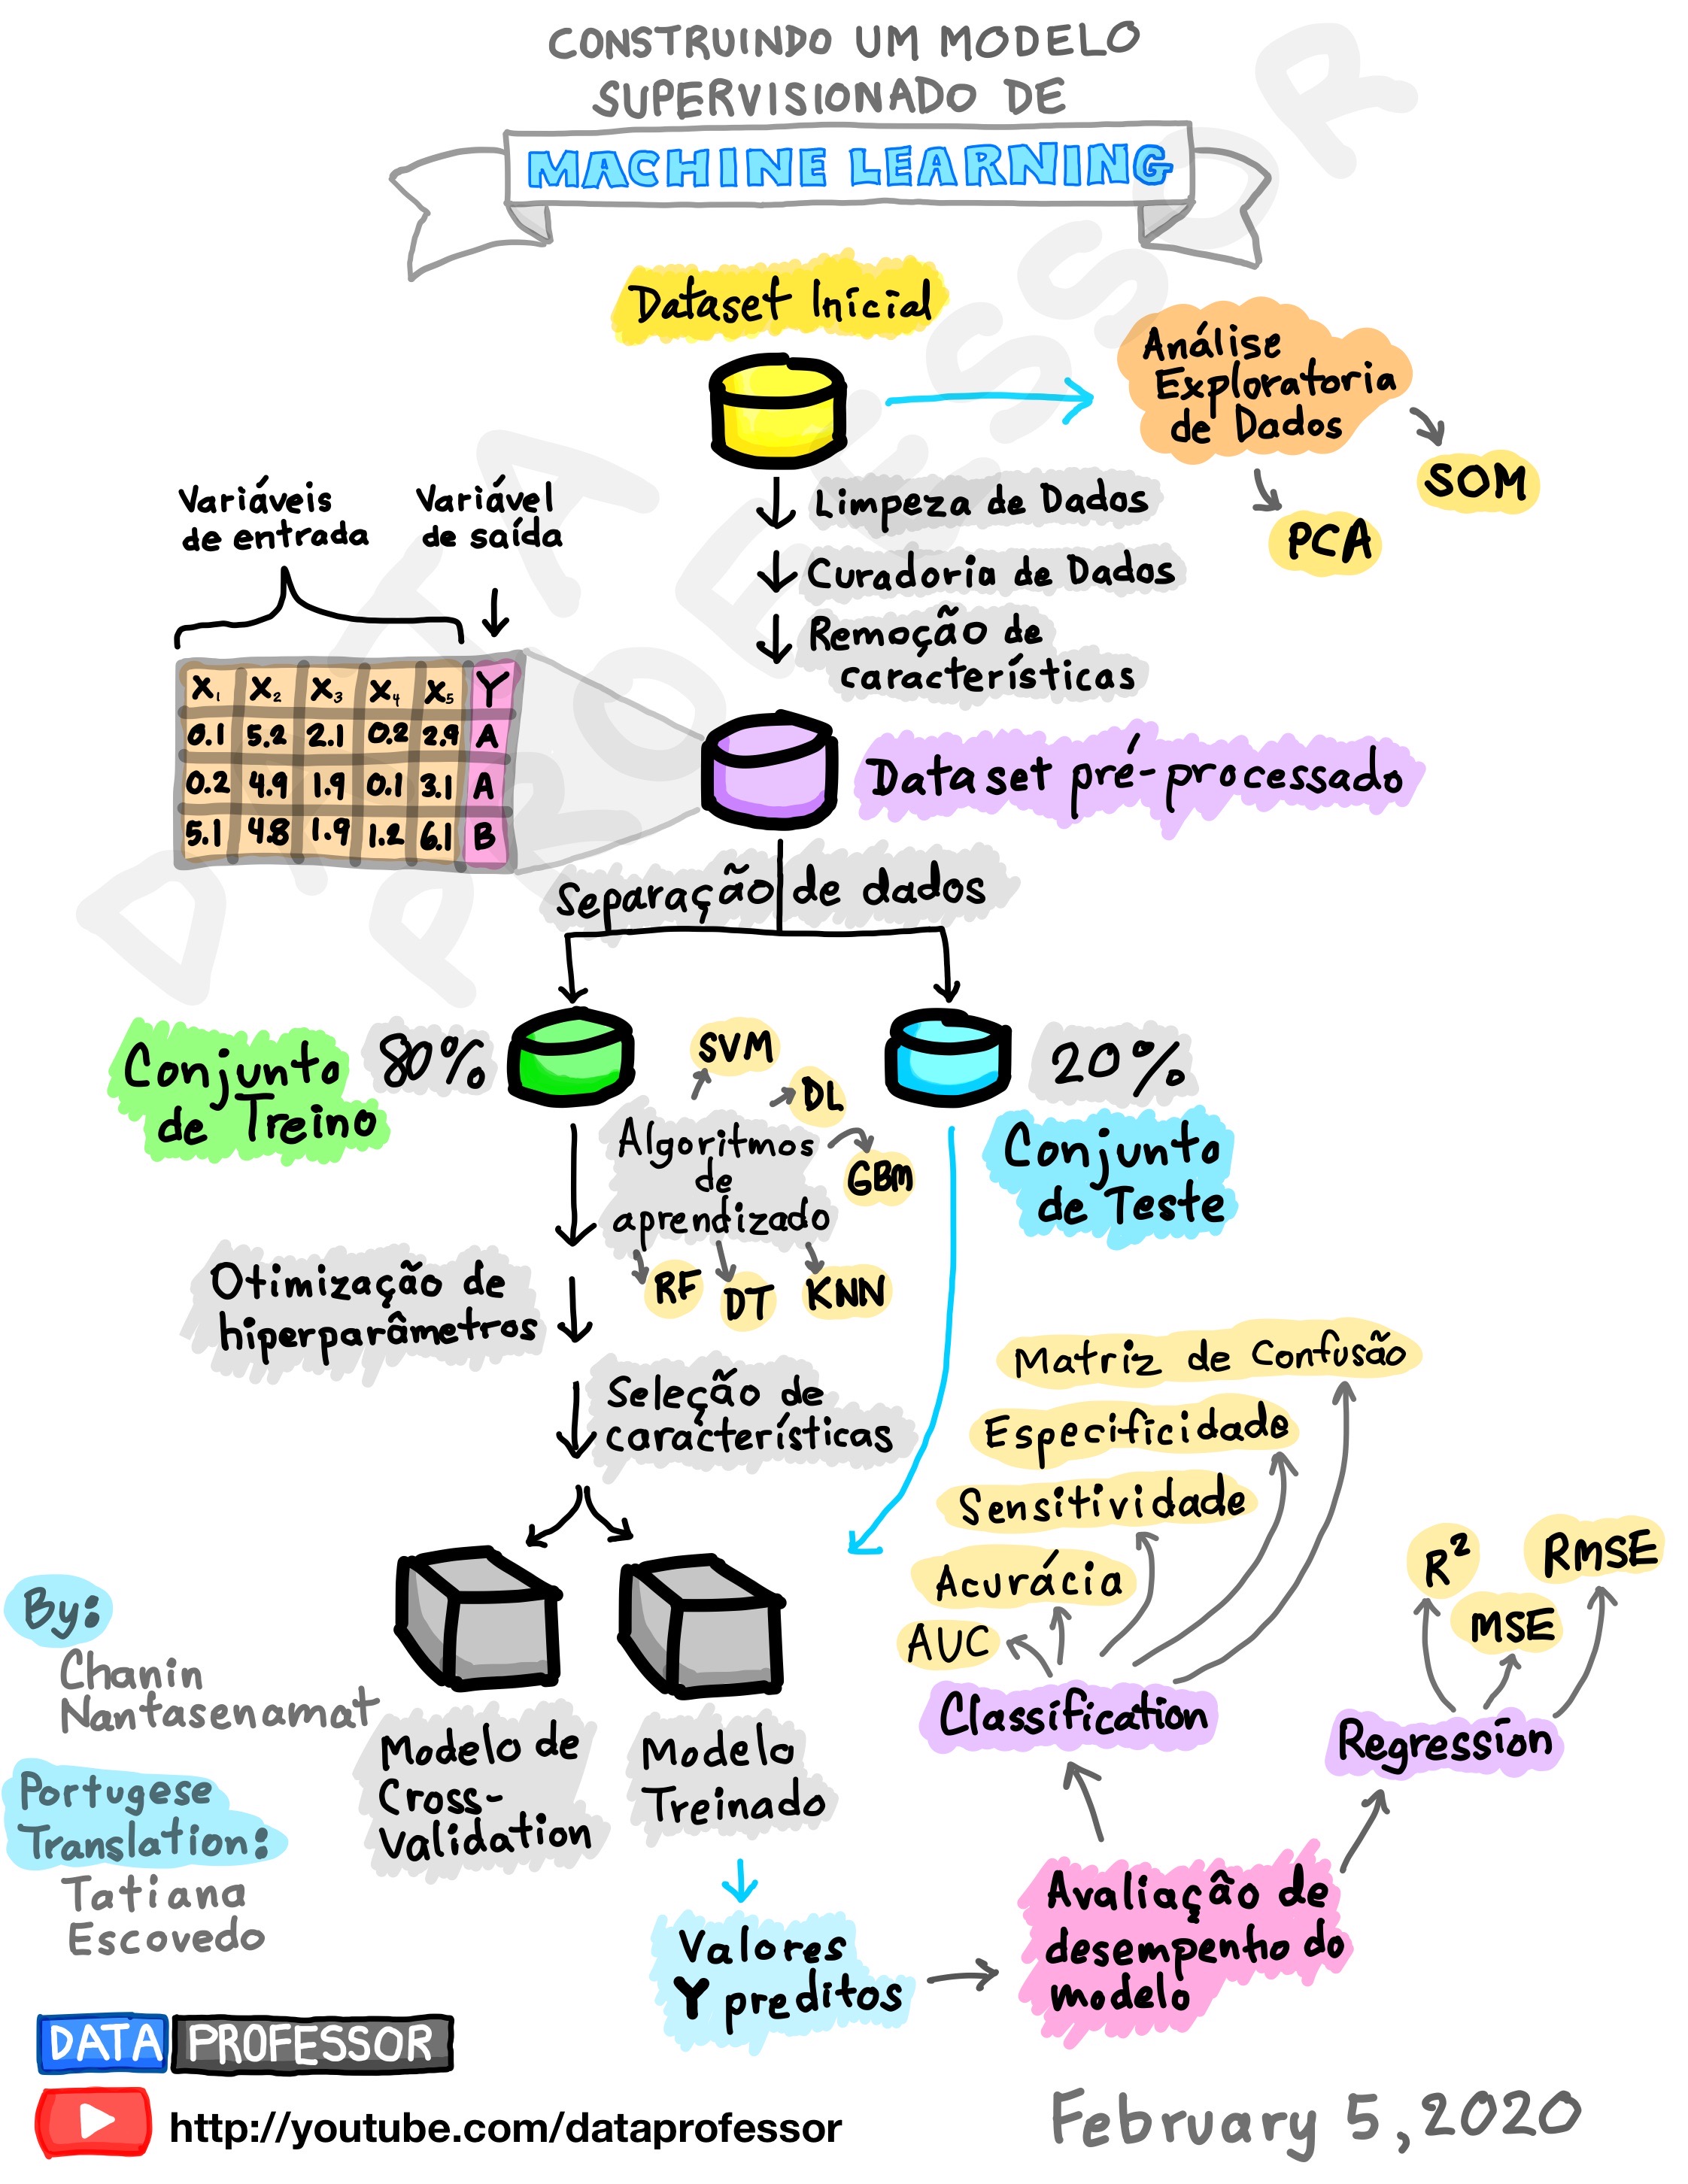 CONSTRUINDO UM MODELO
SUPERVISIONADO DE
MACHINE LEARNING
Dataset Inicial
Análise
Exploratoria
de Dados
SOM
PCA
Limpeza de Dados
Curadoria de Dados
Remoção de
características
Variáveis
de entrada
Variável
de saída
X₁ X₂ X₃ X₄ X₅ Y
0.1 5.2 2.1 0.2 2.9 A
0.2 4.9 1.9 0.1 3.1 A
5.1 4.8 1.9 1.2 6.1 B
Dataset pré-processado
Separação de dados
Conjunto
de Treino
80%
SVM
DL
GBM
Algoritmos
de
aprendizado
RF
DT
KNN
20%
Conjunto
de Teste
Otimização de
hiperparâmetros
Seleção de
características
Matriz de Confusão
Especificidade
Sensitividade
Acurácia
AUC
Classification
R²
MSE
RMSE
Regression
Modelo de
Cross-
Validation
Modelo
Treinado
Valores
Y preditos
Avaliação de
desempenho do
modelo
By:
Chanin
Nantasenamat
Portugese
Translation:
Tatiana
Escovedo
DATA PROFESSOR
http://youtube.com/dataprofessor
February 5, 2020
DATA
PROFESSOR